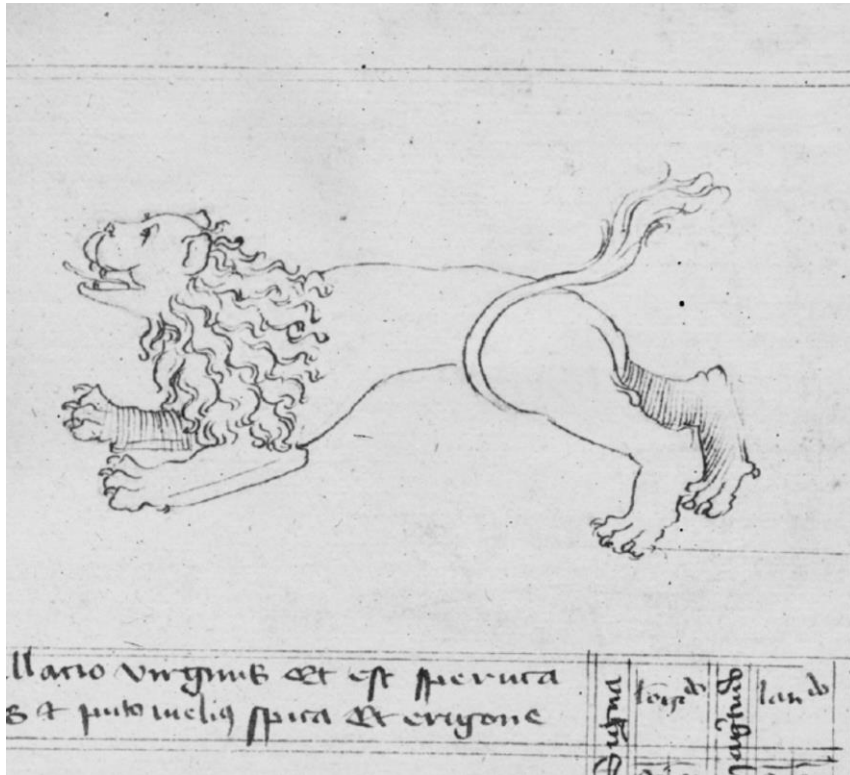 llatio virginis et est speruta
s et puto melius spica et erigone
Signa
longdo
latdo